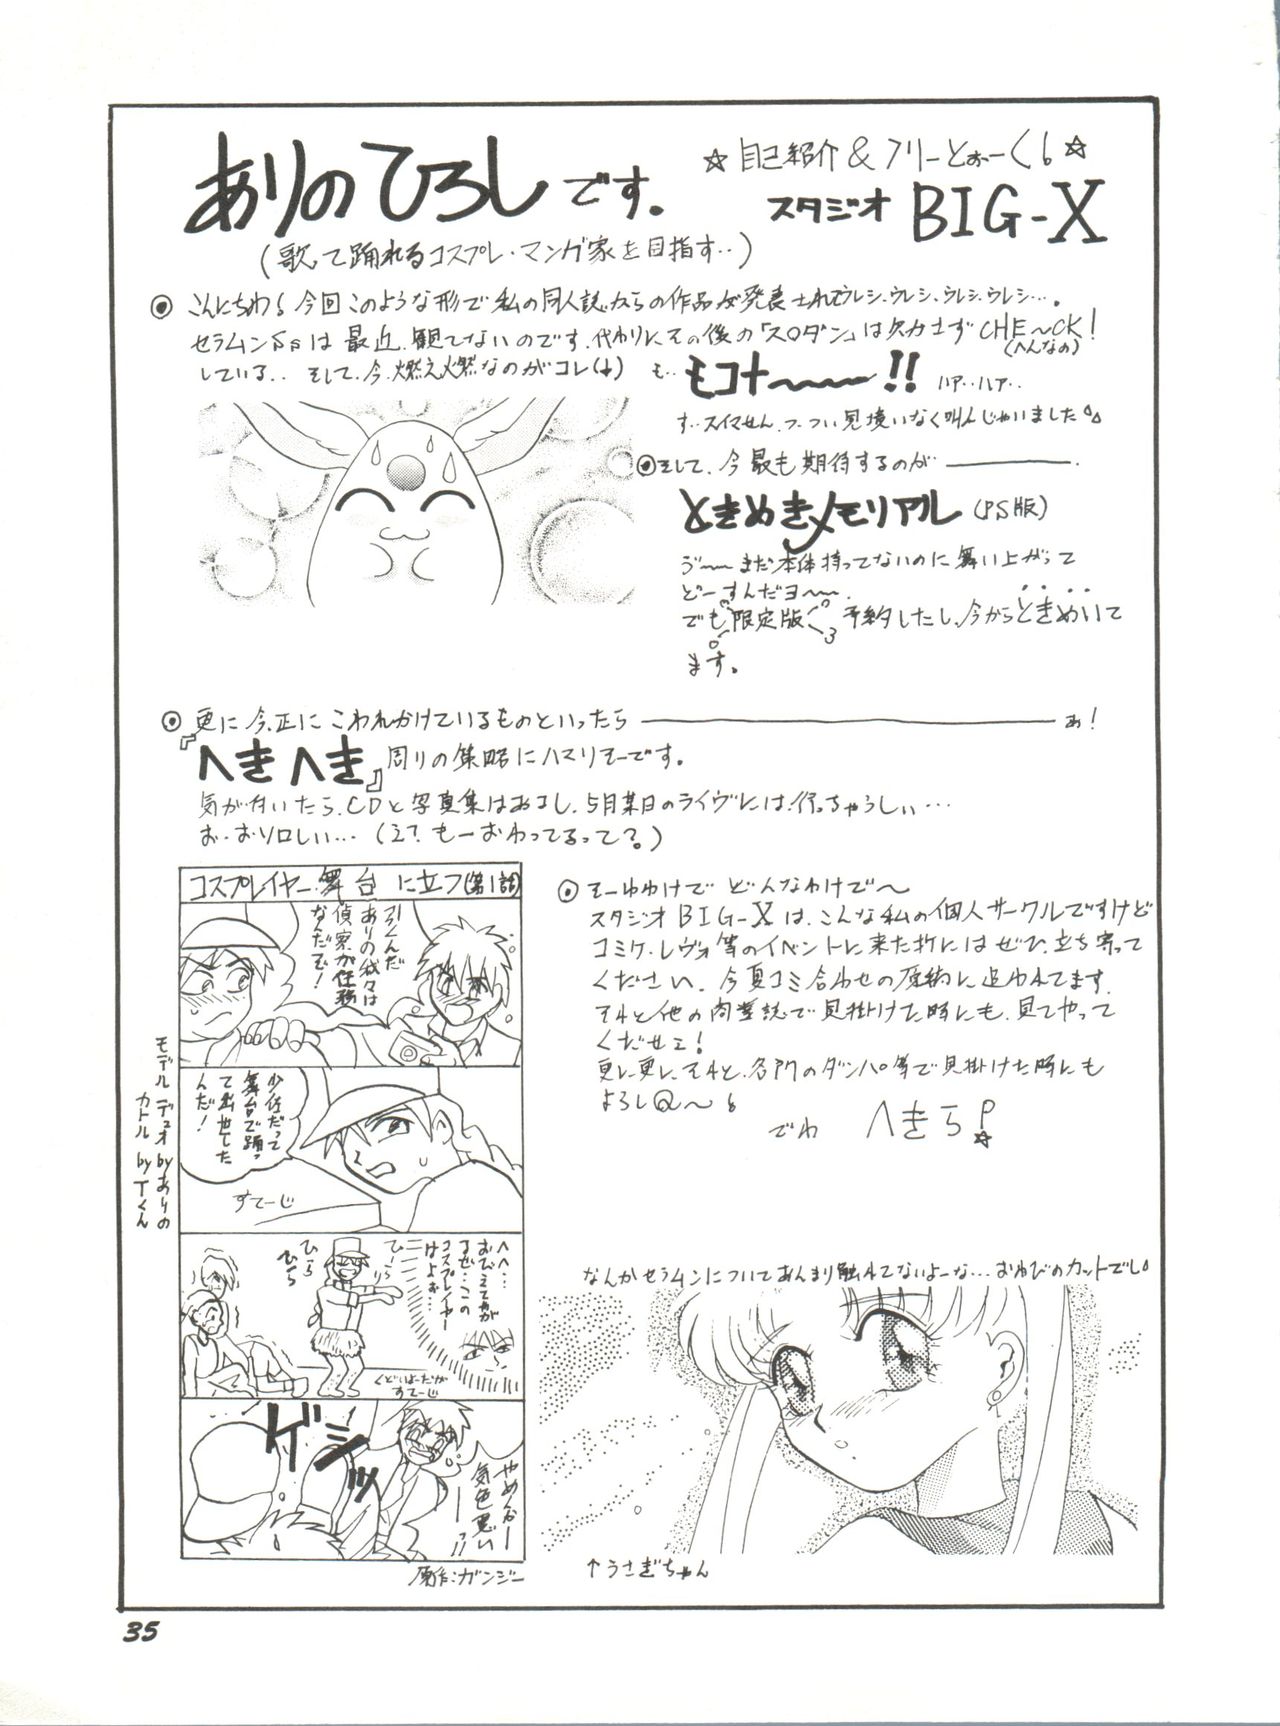 ☆自己紹介&フリーとぉーく!☆
ありのひろしです。
スタジオ BIG-X
(歌って踊れるコスプレ・マンガ家を目指す‥)
◎こんにちわ!今回このような形で私の同人誌からの作品が発表されてウレシ、ウレシ、ウレシ、ウレシ…。
セラムンSsは最近観てないのです。代わりにその後の「スロダン」は欠かさずCHE〜CK!
(へんなの)
している‥ そして、今、燃え燃なのがコレ(↓)
も‥モコナ〜〜〜!! ハァ‥ハァ‥
す‥スイマせん、つ・つい見境いなく叫んじゃいました
◎そして、今最も期待するのが――――.
ときめきメモリアル(PS版)
う〜〜まだ本体持ってないのに舞い上がって
どーすんだヨ〜〜.
でも限定版 予約したし、今からときめいて
ます。
◎更に今、正にこわれかけているものといったら――――ぁ!
『へきへき』周りの策略にハマりそーです。
気が付いたら、CDと写真集はあるし、5月某日のライヴには、行っちゃうしぃ…
お‥おソロしい…(え?もーおわってるって?)
コスプレイヤー舞台に立つ(第1話)
引くんだ
ありの我々は
偵察が任務
なんだぞ!
少佐だって
舞台で踊っ
て出世した
んだ!
すてーじ
モデル デュオbyありの
カトルbyTくん
へへ…
おびえてやが
るぜ…この
コスプレイヤー
はよぉ…
ひーら
ひーら
ひーら
くどいよーだが
すてーじ
ゲシッ
やめんかー
気色悪い
ー!!
原作:ガンジー
◎そーゆわけで どんなわけで〜
スタジオBIG-Xは、こんな私の個人サークルですけど
コミケ、レヴォ等のイベントに来た折にはぜひ、立ち寄って
ください. 今夏コミ合わせの原稿に追われてます.
それと他の商業誌で見掛けた時にも、見てやって
くだせえ!
更に更に、それと、各所のダンパ等で見掛けた時にも
よろし@〜!
でわ へきら!
なんかセラムンについてあんまり触れてないよーな…おわびのカットでし。
↑うさぎちゃん
35